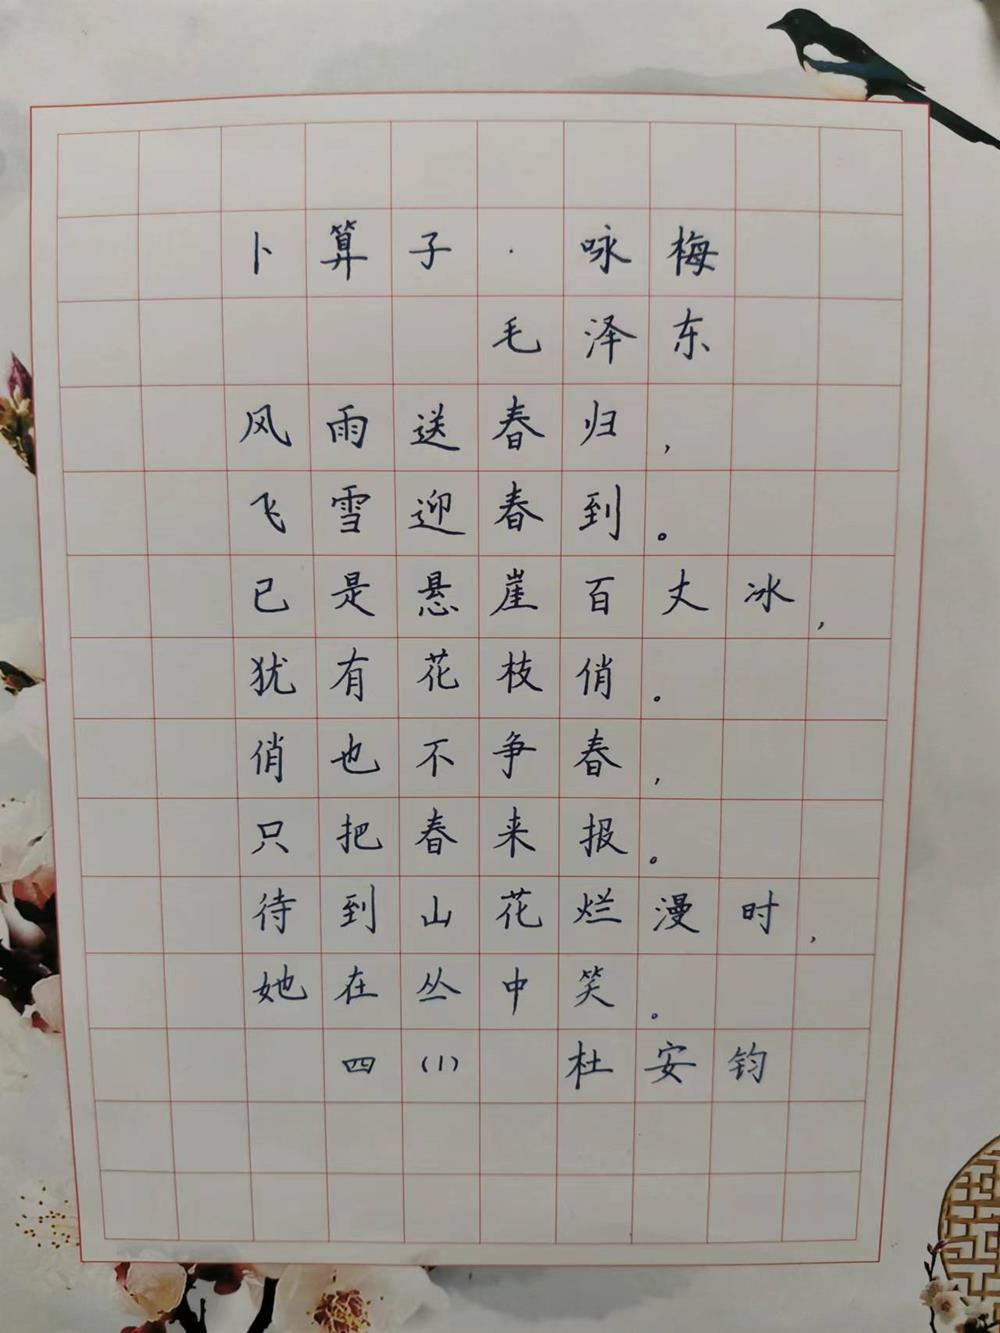 卜算子·咏梅
毛泽东
风雨送春归，
飞雪迎春到。
已是悬崖百丈冰，
犹有花枝俏。
俏也不争春，
只把春来报。
待到山花烂漫时，
她在丛中笑。
四(1) 杜安钧